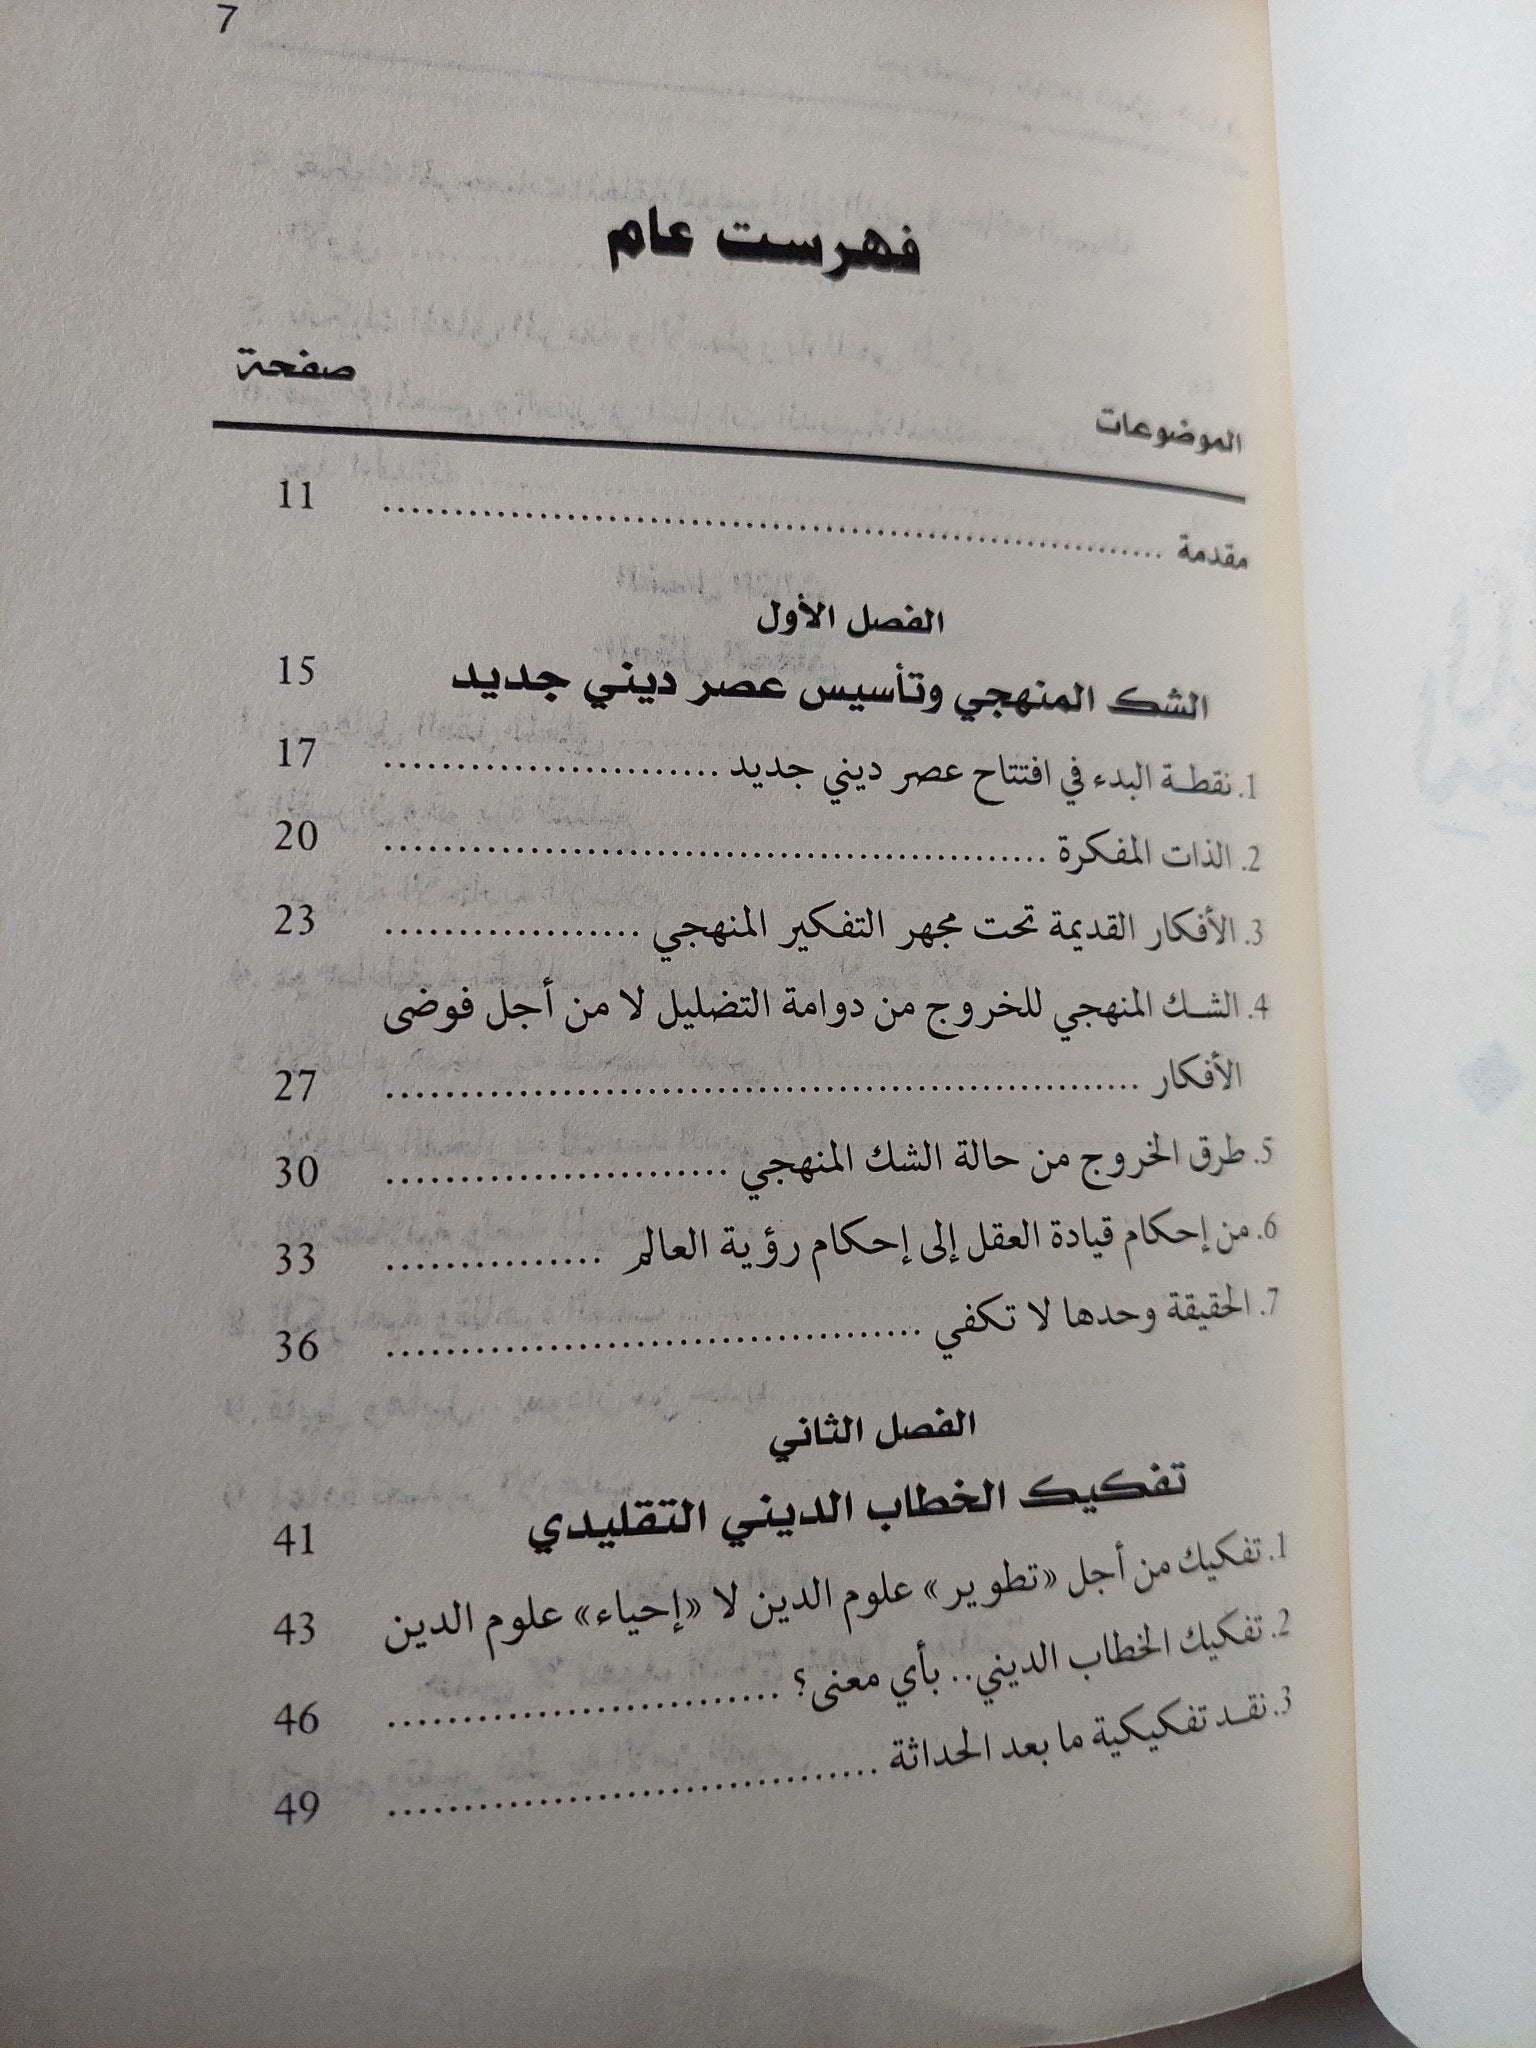 7
فهرست عام
الموضوعات صفحة
مقدمة ........................................................ 11
الفصل الأول
الشك المنهجي وتأسيس عصر ديني جديد 15
1. نقطة البدء في افتتاح عصر ديني جديد ....................... 17
2. الذات المفكرة ............................................. 20
3. الأفكار القديمة تحت مجهر التفكير المنهجي .................. 23
4. الشك المنهجي للخروج من دوامة التضليل لا من أجل فوضى
الأفكار ................................................... 27
5. طرق الخروج من حالة الشك المنهجي ....................... 30
6. من إحكام قيادة العقل إلى إحكام رؤية العالم ............... 33
7. الحقيقة وحدها لا تكفي ................................... 36
الفصل الثاني
تفكيك الخطاب الديني التقليدي 41
1. تفكيك من أجل «تطوير» علوم الدين لا «إحياء» علوم الدين 43
2. تفكيك الخطاب الديني.. بأي معنى؟ .......................... 46
3. نقد تفكيكية ما بعد الحداثة ................................ 49